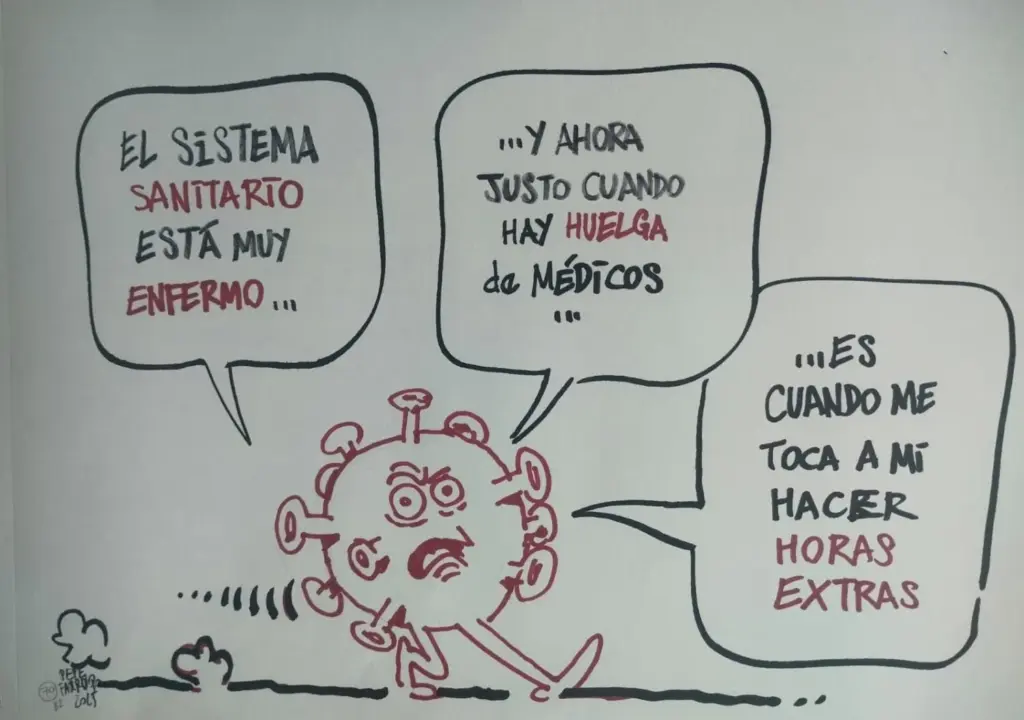 EL SISTEMA
SANITARIO
ESTÁ MUY
ENFERMO...
...Y AHORA
JUSTO CUANDO
HAY HUELGA
de MÉDICOS
...
...ES
CUANDO ME
TOCA A MÍ
HACER
HORAS
EXTRAS
PEPE